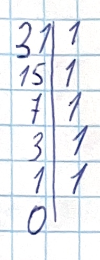 31 1
15 1
7 1
3 1
1 1
0